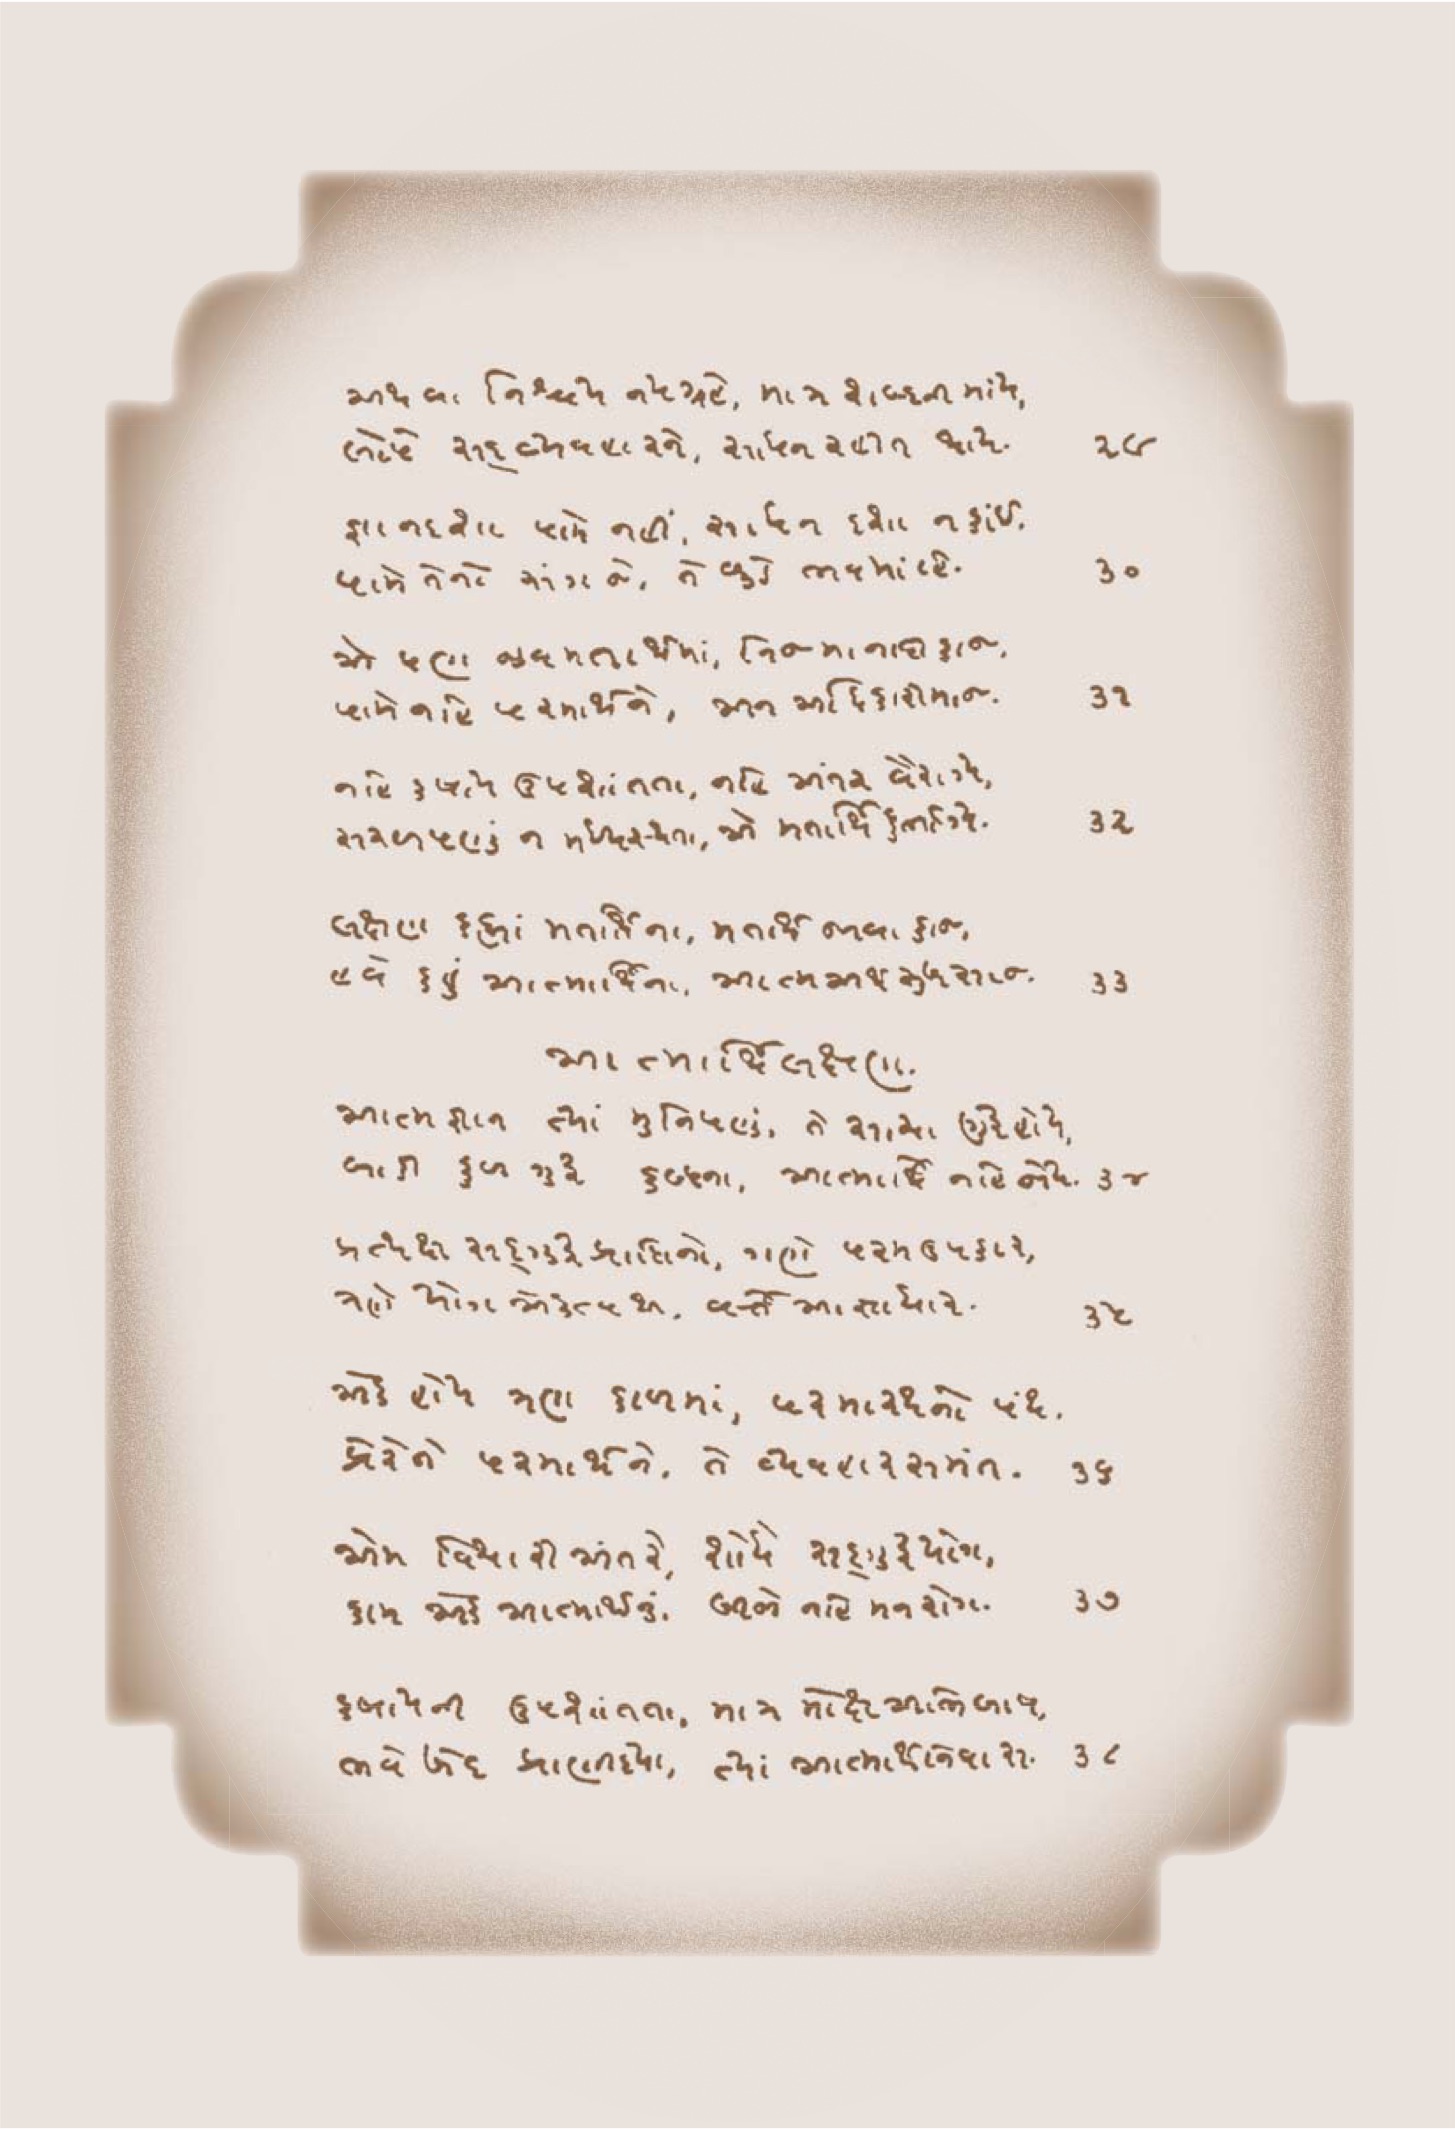 અથવા નિશ્ચયનય ગ્રહે, માત્ર શબ્દની માંય,
લોપે સદ્વ્યવહારને, સાધન રહીત થાય. ૨૯
જ્ઞાનદશા પામે નહીં, સાધન દશા ન કાંઈ.
પામે તેનો સંગ જે, તે બુડે ભવમાંહિ. ૩૦
એ પણ જીવ મતાર્થમાં, નિજ માનાદી કાજ,
પામે નહિ પરમાર્થને, અન અધિકારીમાજ. ૩૧
નહિ કષાય ઉપશાંતતા, નહિ અંતર વૈરાગ્ય,
સરળપણું ન મધ્યસ્થતા, એ મતાર્થિ દુર્ભાગ્ય. ૩૨
લક્ષણ કહ્યાં મતાર્થિના, મતાર્થ જાવા કાજ,
હવે કહું આત્માર્થિના, આત્મ અર્થ સુખ સાજ. ૩૩
આત્માર્થિ લક્ષણ.
આત્મ જ્ઞાન ત્યાં મુનિપણું, તે સાચા ગુરૂ હોય,
બાકી કુળ ગુરૂ કલ્પના, આત્માર્થિ નહિ જોય. ૩૪
પ્રત્યેક્ષ સદ્ગુરૂ પ્રાપ્તિનો, ગણે પરમ ઉપકાર,
ત્રણે યોગ એકત્વથી, વર્ત્તે આજ્ઞાધાર. ૩૫
એક હોય ત્રણ કાળમાં, પરમારથનો પંથ.
પ્રેરે તે પરમાર્થને, તે વ્યેવહાર સમંત. ૩૬
એમ વિચારી અંતરે, શોધે સદ્ગુરૂ યોગ,
કામ એક આત્માર્થનું, બીજો નહિ મન રોગ. ૩૭
કષાયની ઉપશાંતતા, માત્ર મોક્ષ અભિલાષ,
ભવે ખેદ પ્રાણીદયા, ત્યાં આત્માર્થ નિવાસ. ૩૮